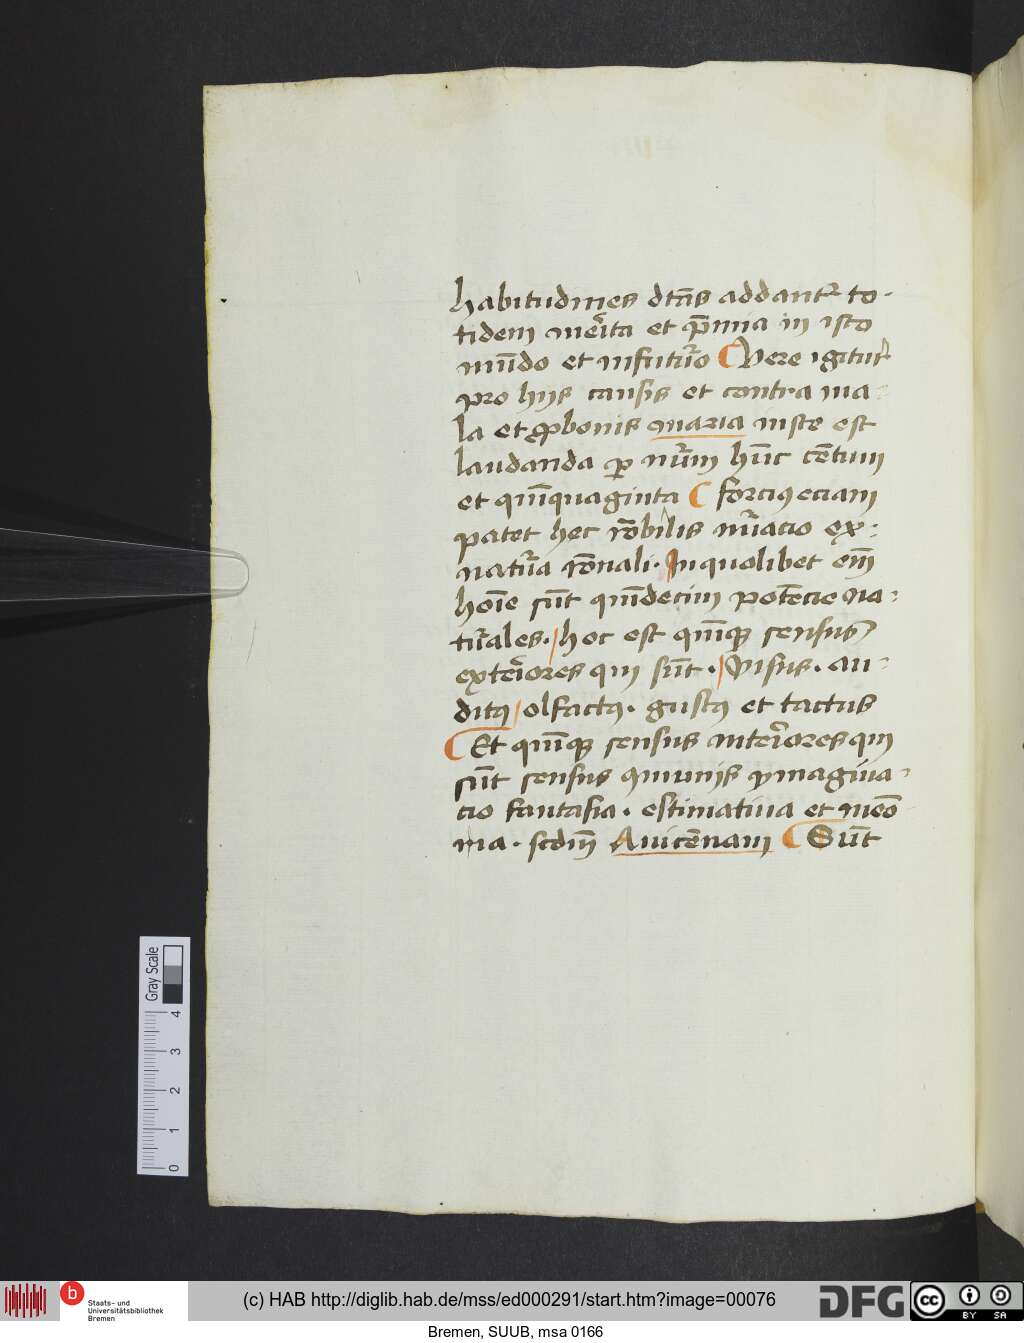 habitudines dtās addantr to-
tidem merita et p̄mia in isto
mūdo et in futuro Vere igitur
pro hijs causis et contra ma-
la et p̱ bonis maria iuste est
laudanda ꝑ nūm hūc cētum
et quīquaginta Forciꝰ eciam
patet hec rōbilis nūacio ex-
natura rōnali. In quolibet em̄
hoīe sūt quīdecim potēcie na-
turales. hoc est quīqꝫ sensus
exteriores qui sūt. Visus. au-
ditꝰ olfactꝰ. gustꝰ et tactus
Et quīqꝫ sensus interiores qui
sūt sensus ꝯmunis ymagina-
cio fantasia. estimatiua et meō
ria. scdm̄ Auicēnam Sūt
Gray Scale
4
3
2
1
0
b
Staats- und
Universitätsbibliothek
Bremen
(c) HAB http://diglib.hab.de/mss/ed000291/start.htm?image=00076
DFG
cc BY SA
Bremen, SUUB, msa 0166